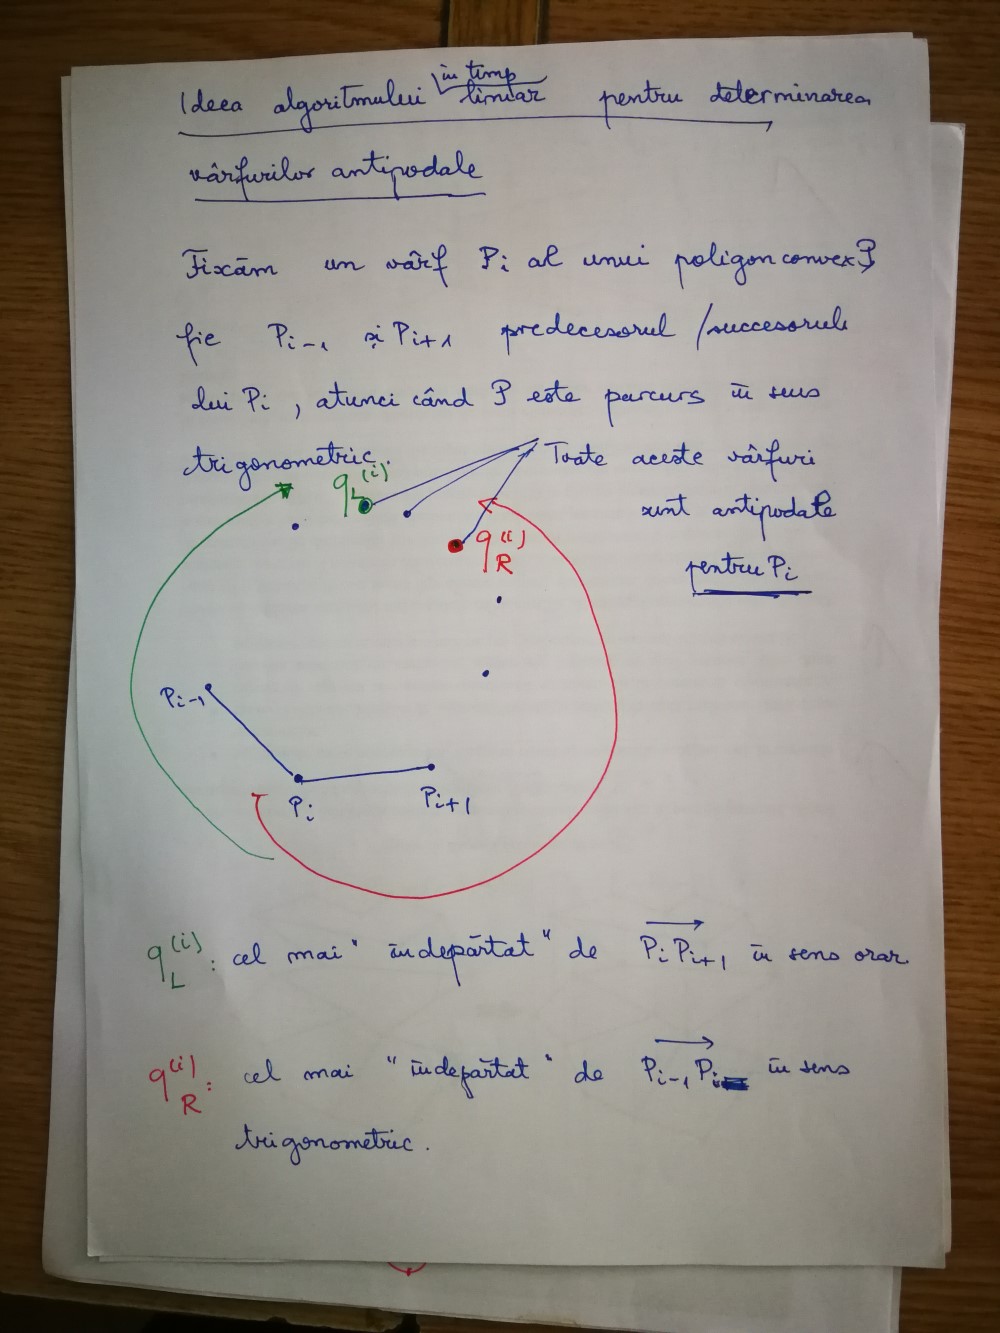 Ideea algoritmului în timp liniar pentru determinarea
vârfurilor antipodale
Fixăm un vârf Pi al unui poligon convex P
fie Pi-1 și Pi+1 predecesorul / succesorul
lui Pi, atunci când P este parcurs în sens
trigonometric.
Toate aceste vârfuri
sunt antipodale
pentru Pi
qL(i)
qR(i)
Pi-1
Pi
Pi+1
qL(i): cel mai "îndepărtat" de PiPi+1 în sens orar.
qR(i): cel mai "îndepărtat" de Pi-1Pi în sens
trigonometric.